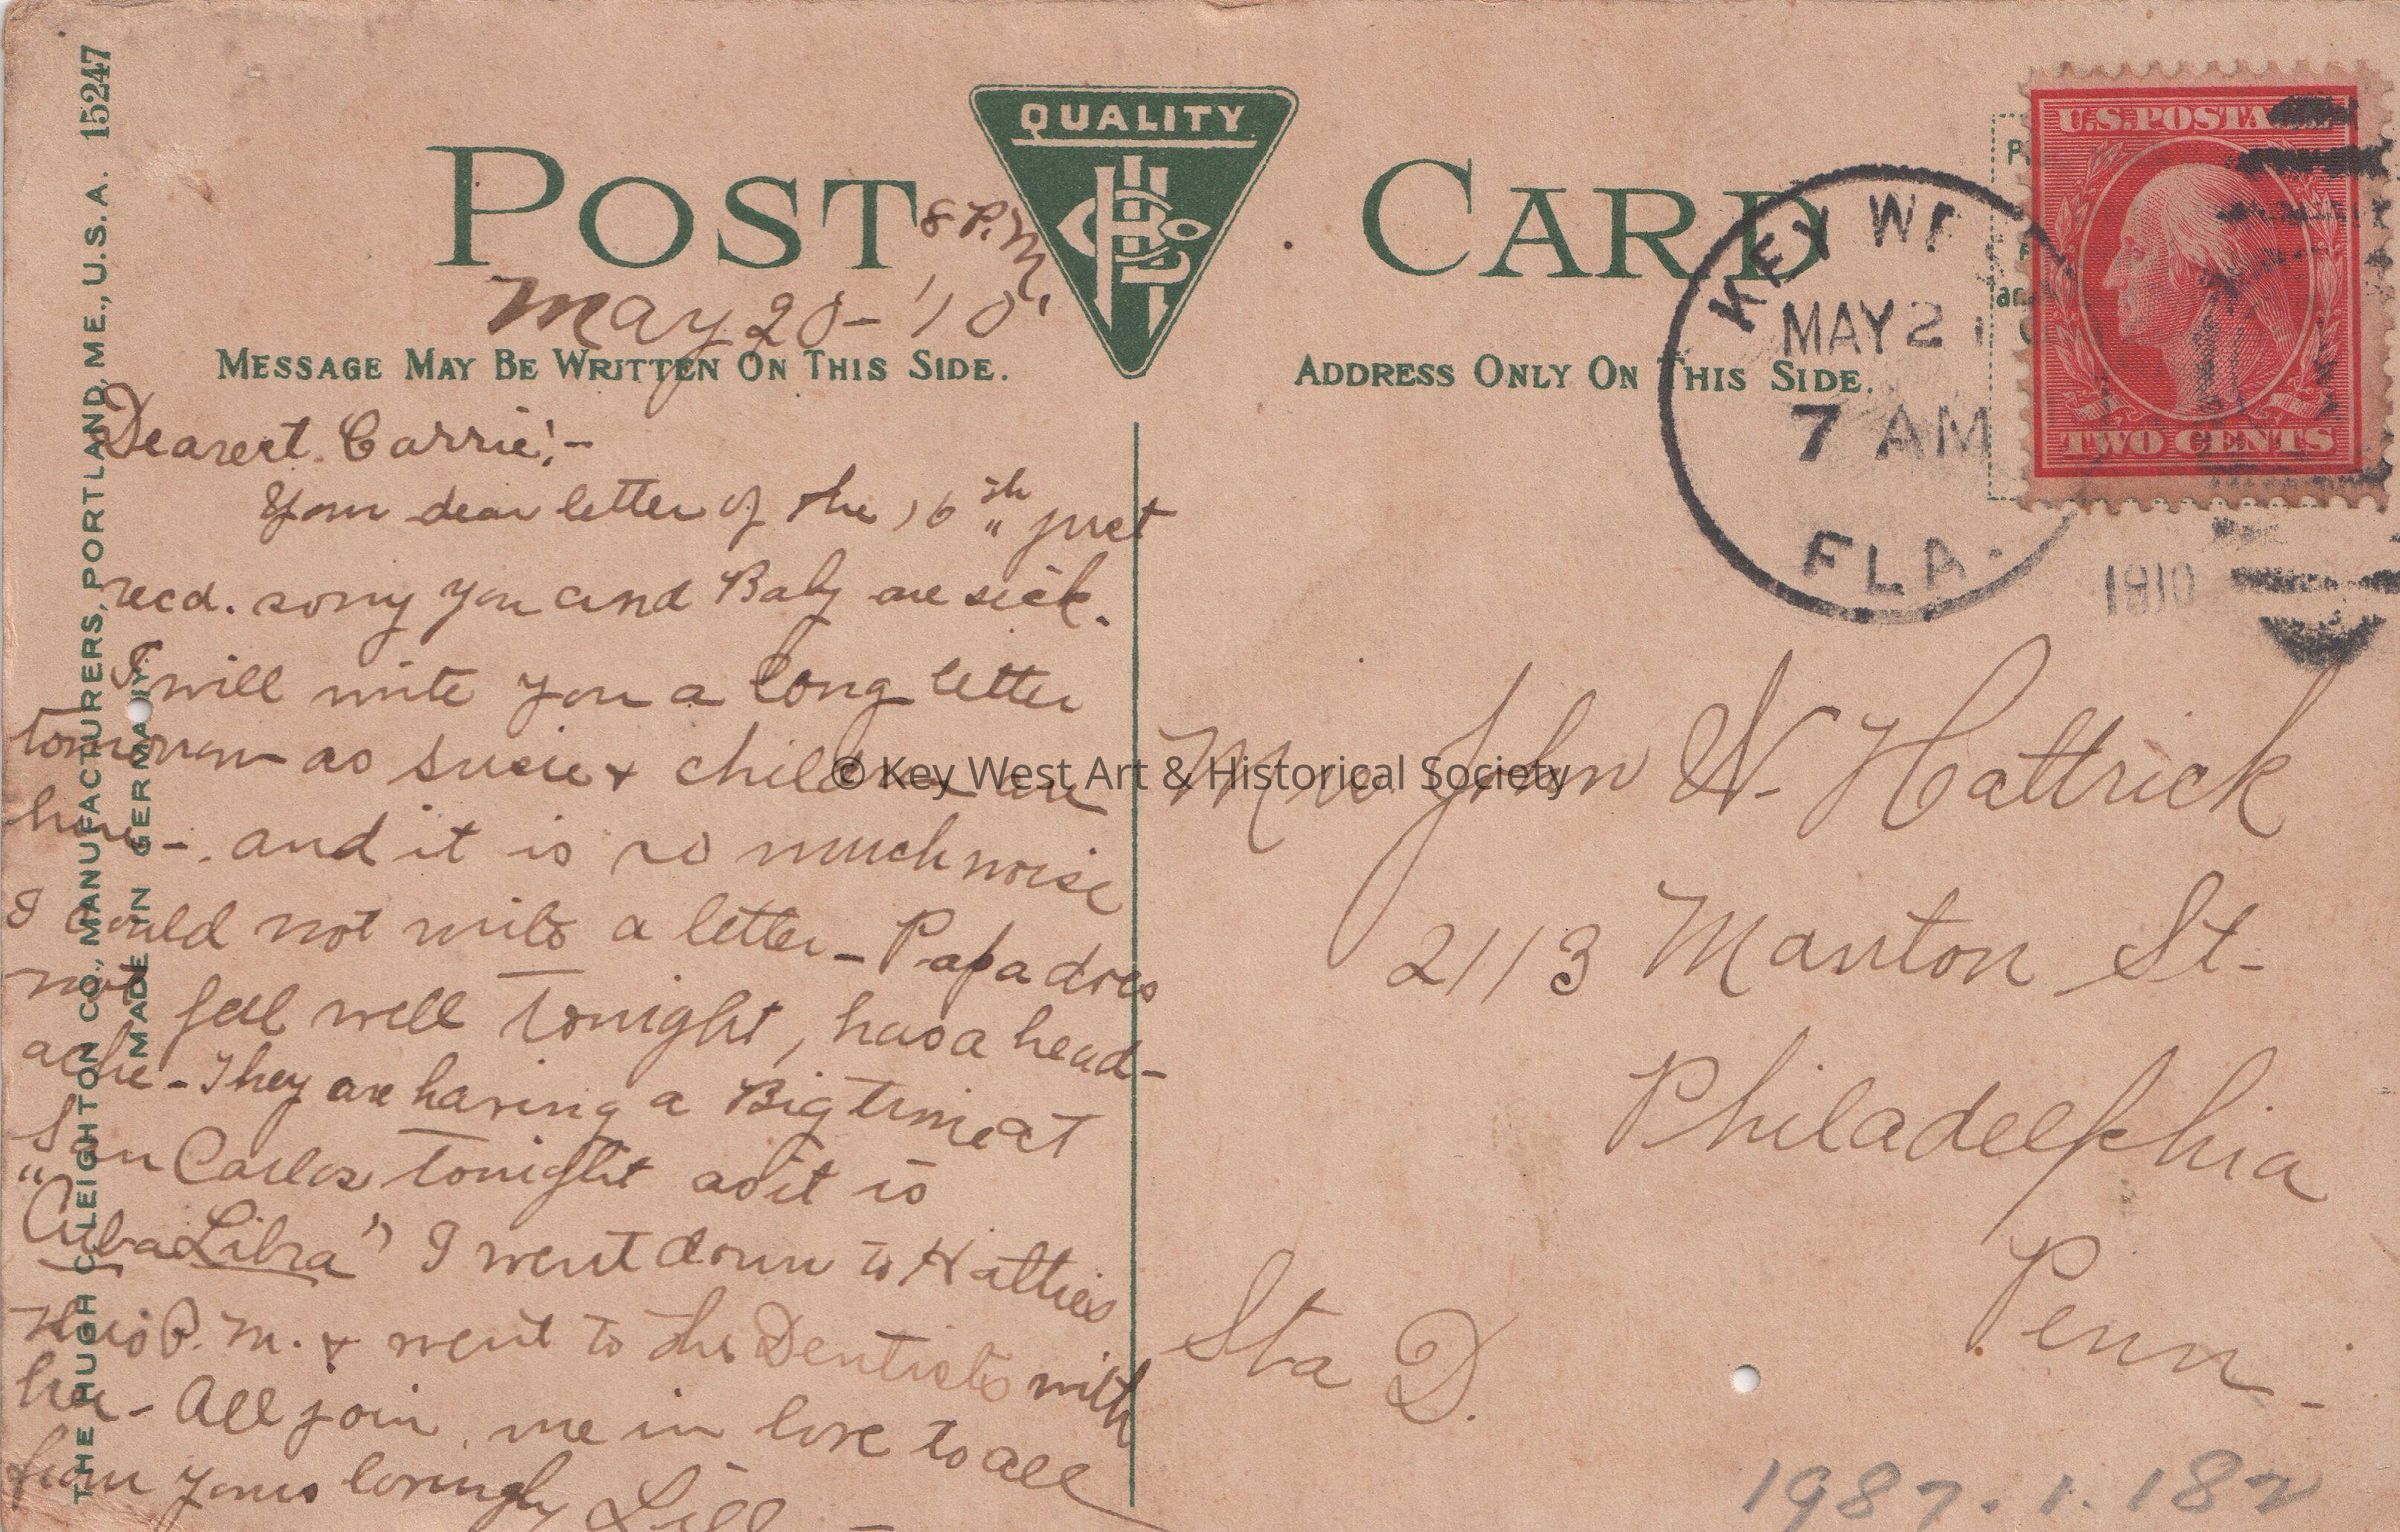 THE HUGH C. LEIGHTON CO., MANUFACTURERS, PORTLAND, ME., U.S.A. 15247
MADE IN GERMANY
POST CARD
QUALITY
8 P.M.
May 20-'10
MESSAGE MAY BE WRITTEN ON THIS SIDE.
Dearest Carrie:-
Your dear letter of the 16th just
recd. sorry you and Baby are sick.
I will write you a long letter
tomorrow as Susie & children are
here-. and it is so much noise
I could not write a letter- Papa does
not feel well tonight, has a head-
ache- They are having a Big time at
San Carlos tonight as it is
"Cuba Libra" I went down to Hatties
this P.M. & went to the Dentists with
her- All join me in love to all
from yours lovingly Lill-
ADDRESS ONLY ON THIS SIDE.
KEY WEST
MAY 21
7 AM
FLA.
1910
U.S. POSTAGE
TWO CENTS
Mrs John W. Hattrick
2113 Manton St-
Philadelphia
Penn-
Sta D.
1987.1.182
© Key West Art & Historical Society